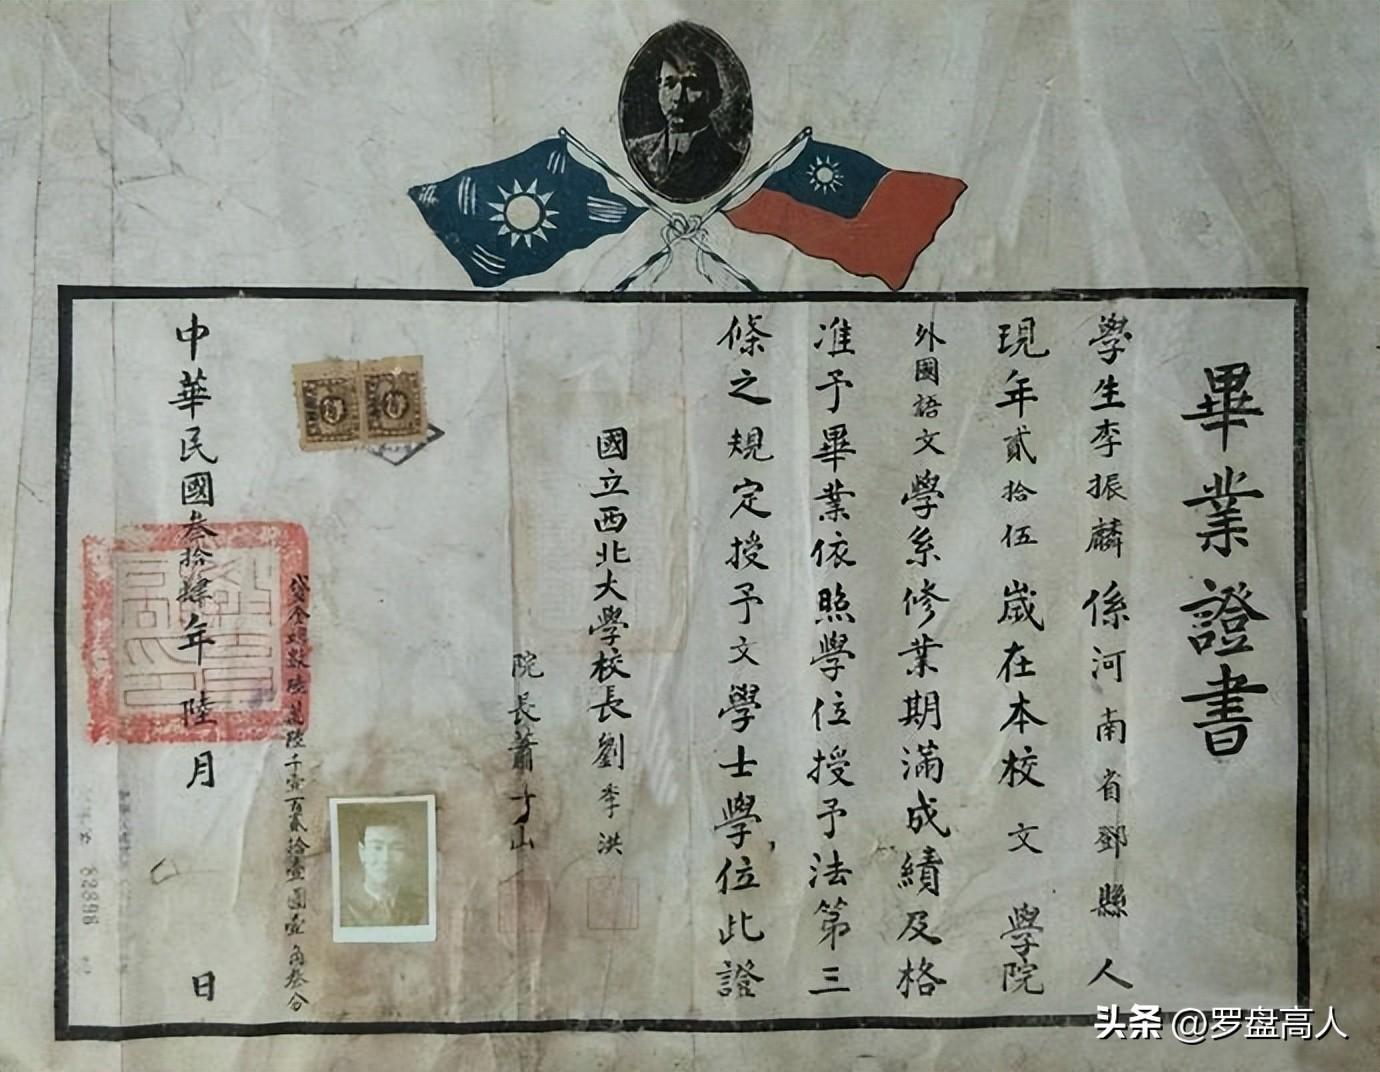 畢業證書
學生李振麟係河南省鄧縣人
現年貳拾伍歲在本校文學院
外國語文學系修業期滿成績及格
准予畢業依照學位授予法第三
條之規定授予文學士學位此證
國立西北大學校長劉季洪
院長蕭一山
貸金總數陸萬陸千壹百貳拾壹圓壹角叁分
中華民國叁拾肆年陸月 日
62896
头条 @罗盘高人